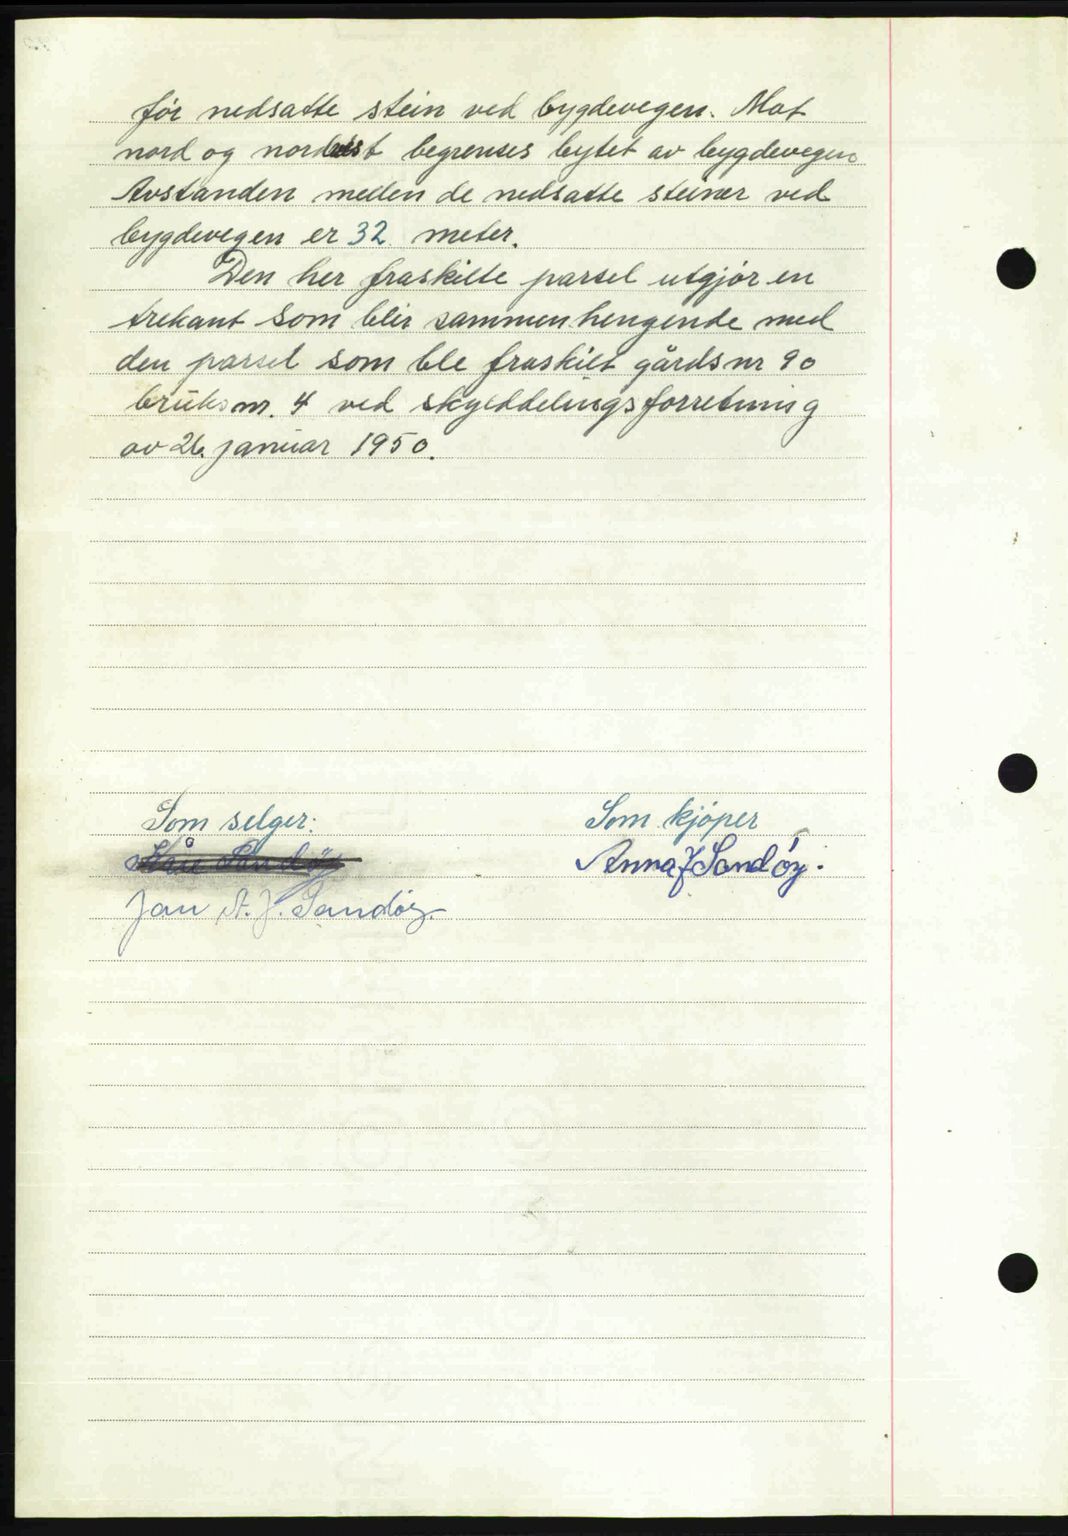 før nedsatte stein ved bygdevegen. Mot
nord og nordvest begrenses bytet av bygdevegen
Avstanden mellen de nedsatte steiner ved
bygdevegen er 32 meter.
Den her fraskilte parsel utgjør en
trekant som blir sammenhengende med
den parsel som ble fraskilt gårdsnr 90
bruksnr. 4 ved skylddelingsforretning
av 26. januar 1950.
Som selger: Som kjøper
Kåre Sandøy Anna J Sandøy.
Jan A. J. Sandøy.